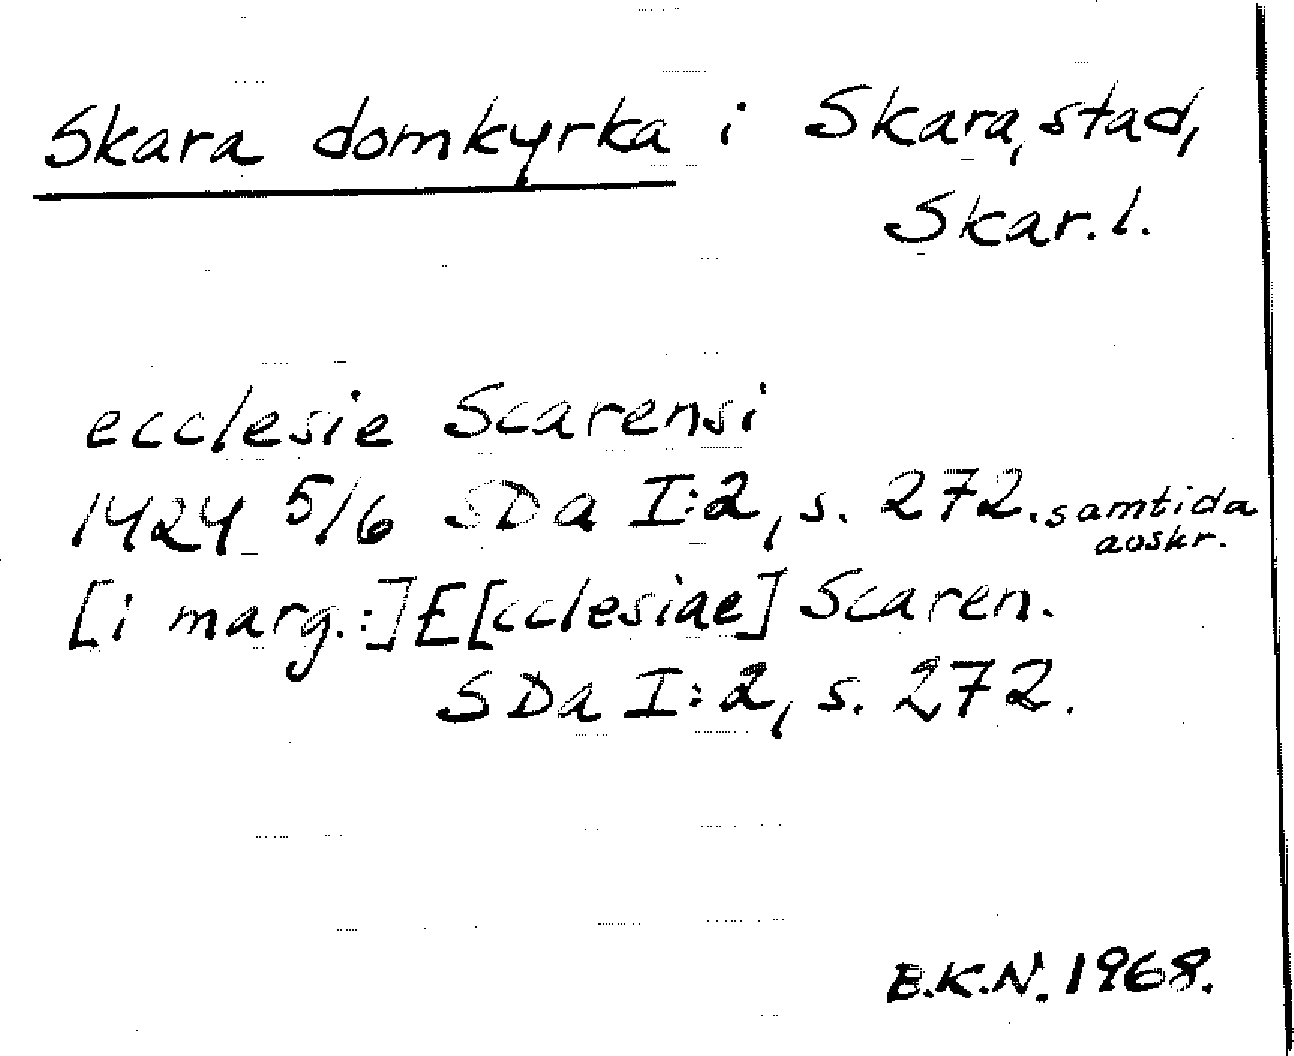 Skara domkyrka i Skara, stad,
Skar. l.
ecclesie Scarensi
1424 5/6 SDa I:2, s. 272. samtida
avskr.
[i marg.:] E[cclesiae] Scaren.
SDa I:2, s. 272.
B.K.N. 1968.